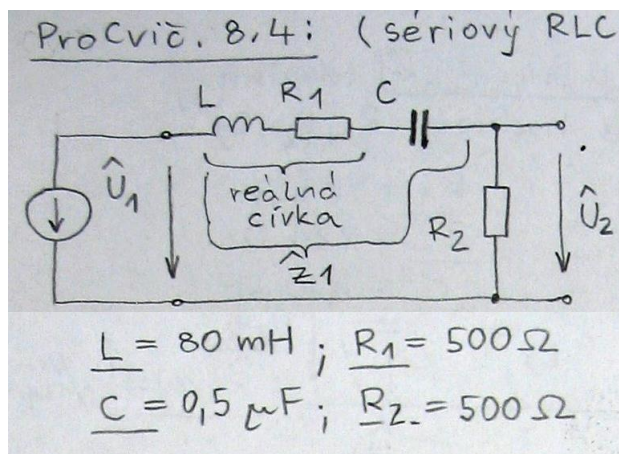 Procvič. 8.4: (sériový RLC
L R1 C
Û1
reálná
cívka
R2
Û2
Ẑ1
L = 80 mH ; R1 = 500 Ω
C = 0,5 μF ; R2 = 500 Ω